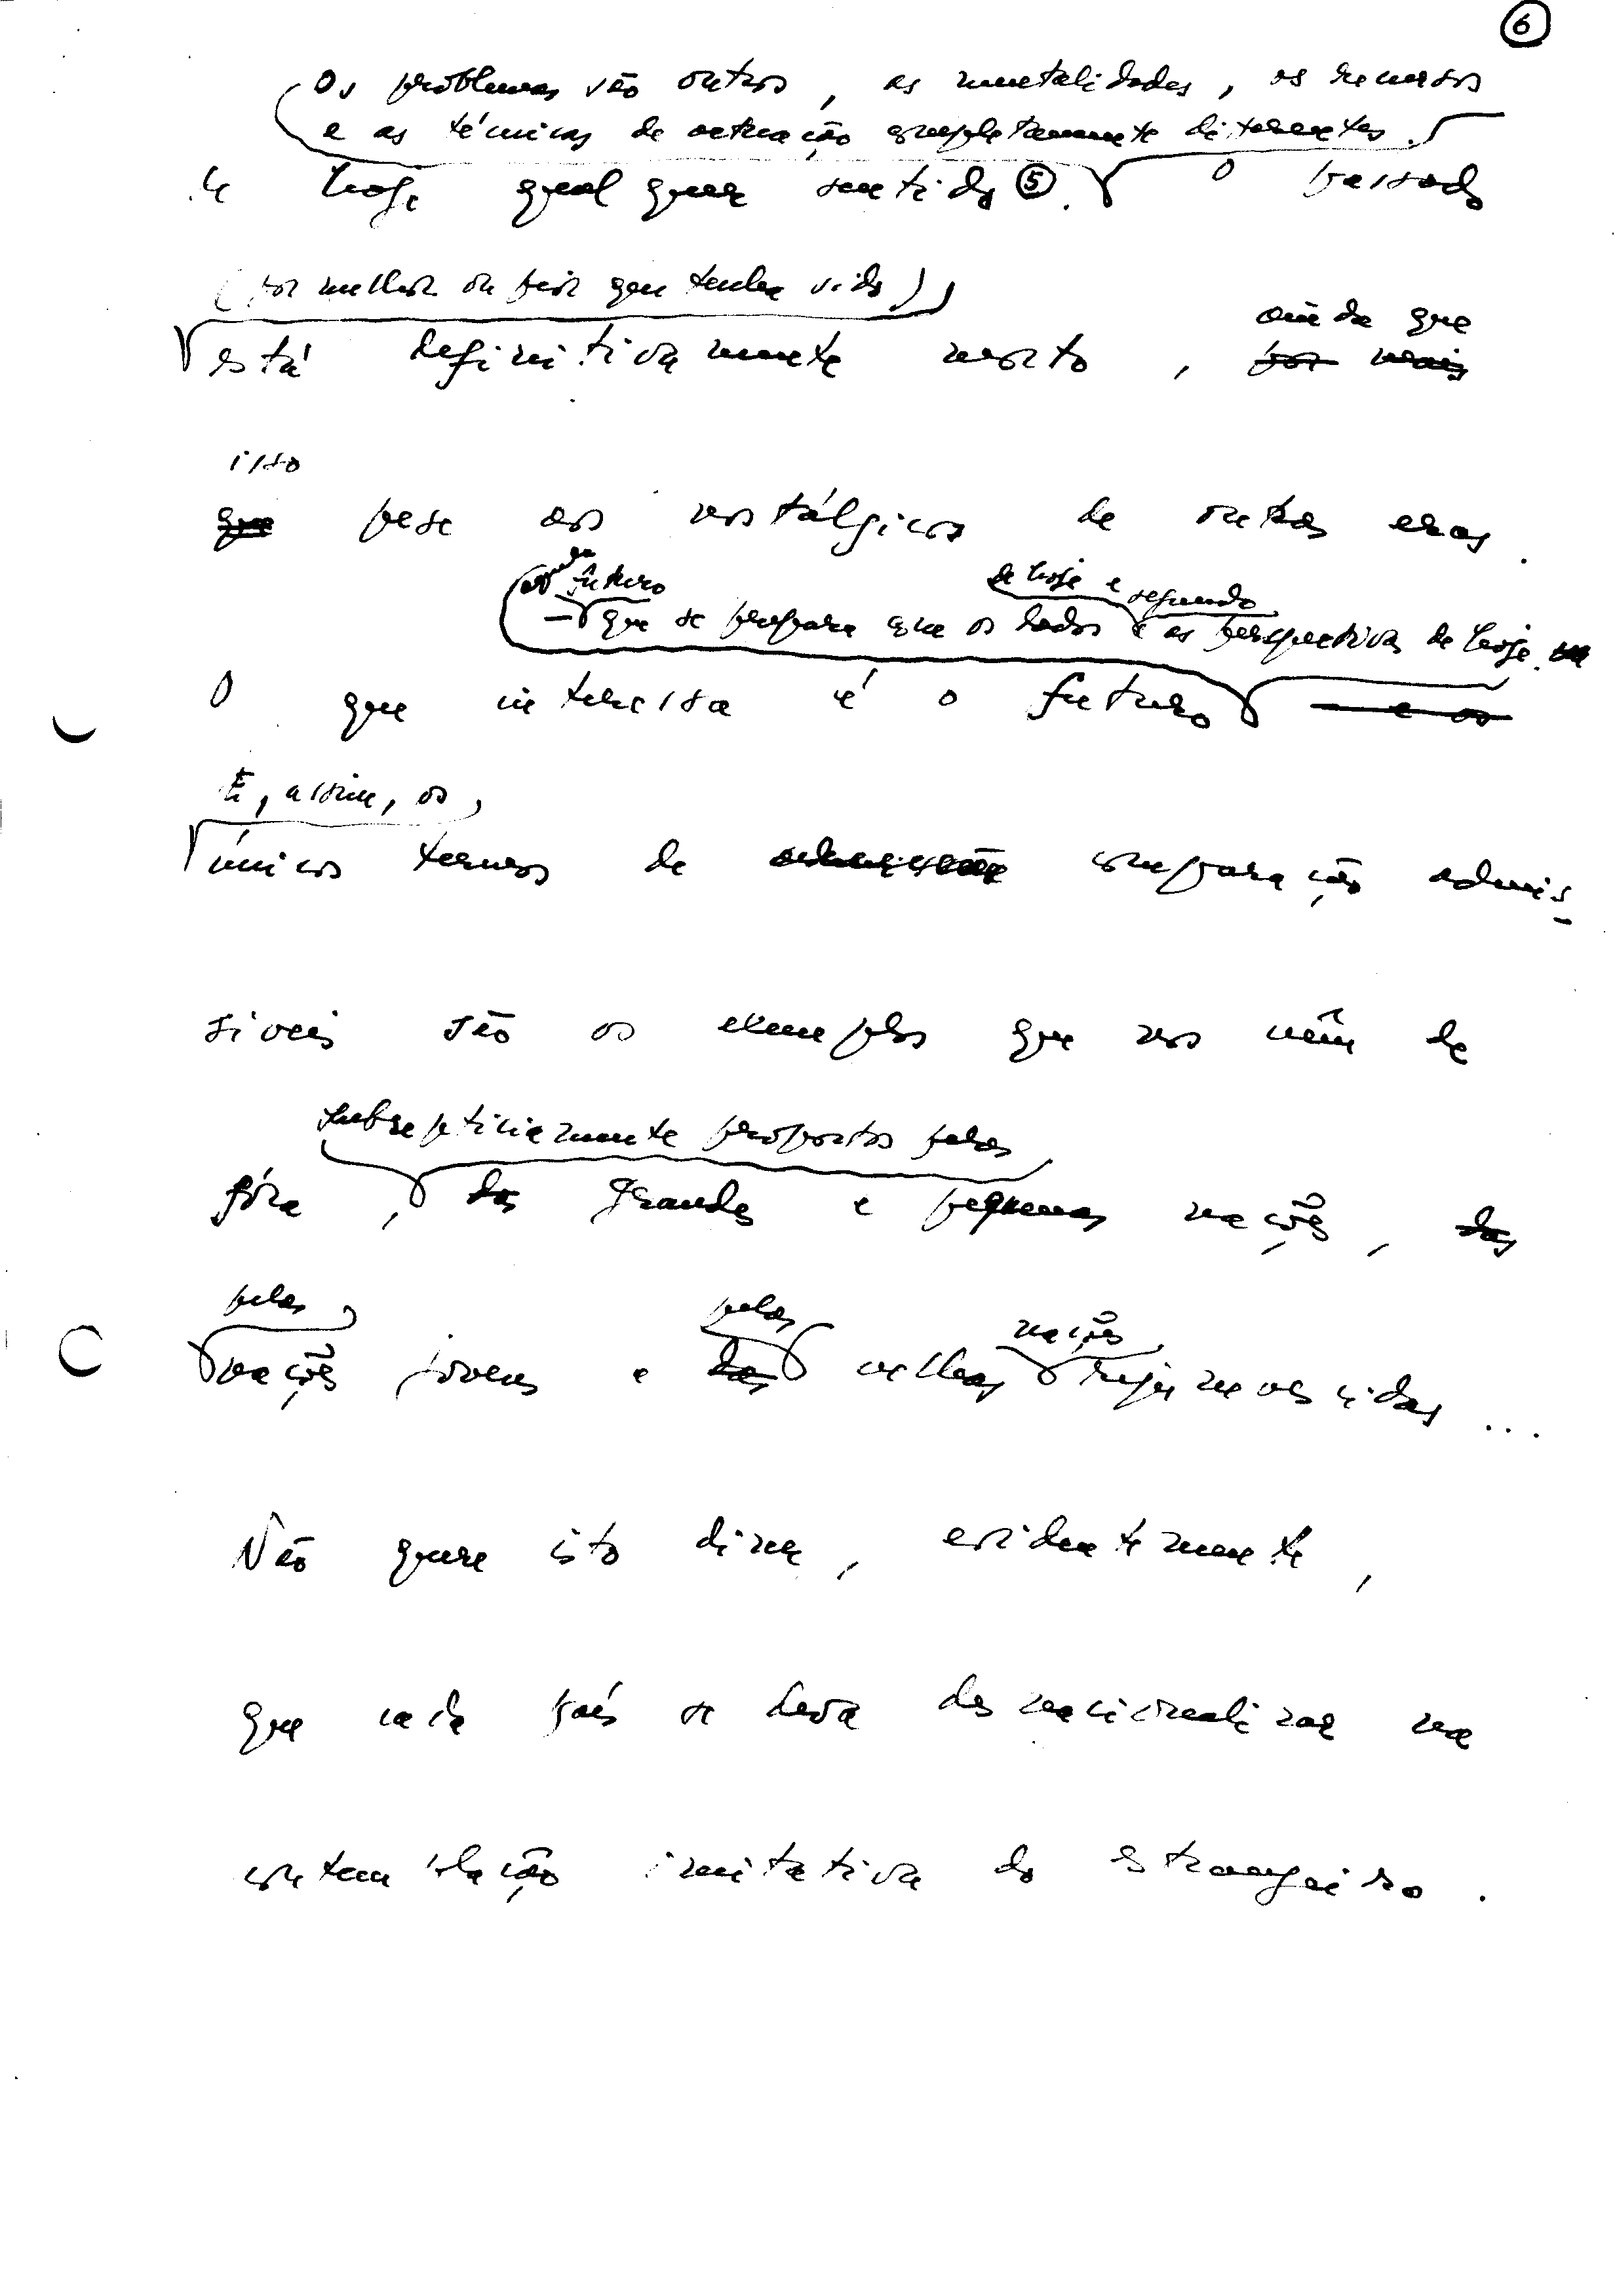 6
Os problemas são outros, as mentalidades, os recursos
e as técnicas de actuação completamente diferentes.
de hoje qualquer sentido 5. O passado
(por melhor ou pior que tenha sido)
está definitivamente morto, por mais
ainda que
isso
que pese aos nostálgicos de outras eras.
futuro
de hoje e segundo
— que se prepara com os dados e as perspectivas de hoje.
O que interessa é o futuro — e os
E, assim, os
únicos termos de comparação admis-
síveis são os exemplos que nos vêm de
subrepticiamente propostos pelas
fóra, das grandes e pequenas nações, das
pelas
pelas
nações
nações jovens e das velhas rejuvenescidas...
Não quere isto dizer, evidentemente,
que cada país se deva desnacionalizar na
contemplação imitativa do estrangeiro.